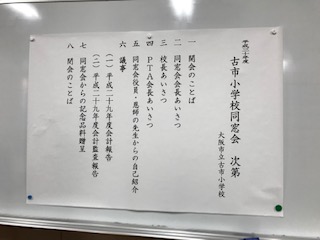 平成三十年度
古市小学校同窓会　次第
大阪市立古市小学校
一　開会のことば
二　同窓会会長あいさつ
三　校長あいさつ
四　ＰＴＡ会長あいさつ
五　同窓会役員・恩師の先生からの自己紹介
六　議事
（一）平成二十九年度会計報告
（二）平成二十九年度会計監査報告
七　同窓会からの記念品料贈呈
八　閉会のことば